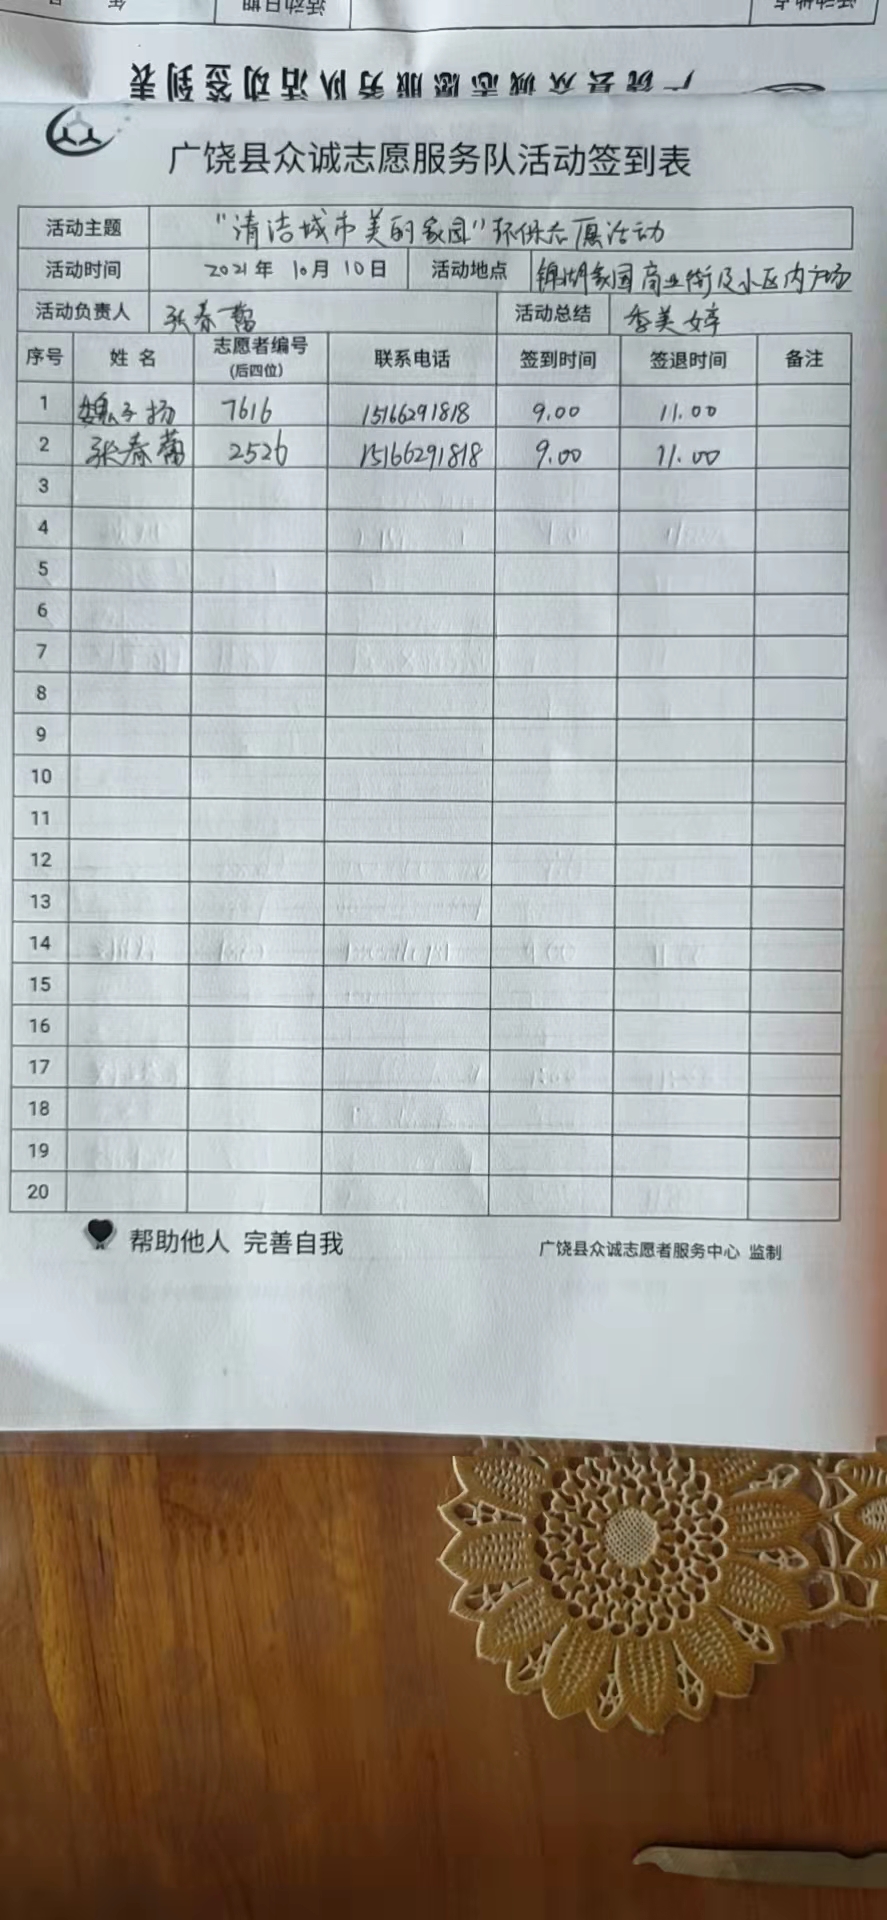 广饶县众诚志愿服务队活动签到表
广饶县众诚志愿服务队活动签到表
活动主题 "清洁城市美的家园"环保志愿活动
活动时间 2021年 10月 10日 活动地点 锦湖家园商业街及小区内广场
活动负责人 张春蕾 活动总结 季美婷
序号 姓 名 志愿者编号 (后四位) 联系电话 签到时间 签退时间 备注
1 魏子扬 7616 15166291818 9.00 11.00
2 张春蕾 2526 15166291818 9.00 11.00
3
4
5
6
7
8
9
10
11
12
13
14
15
16
17
18
19
20
帮助他人 完善自我 广饶县众诚志愿者服务中心 监制